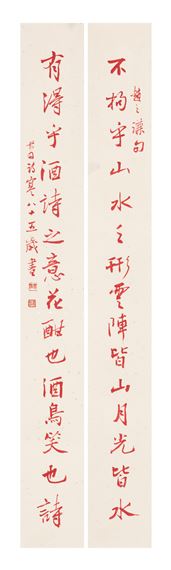 不拘乎山水之形雲陣皆山月光皆水
趙之謙句
有得乎酒詩之意花酣也酒鳥笑也詩
八十五歲書